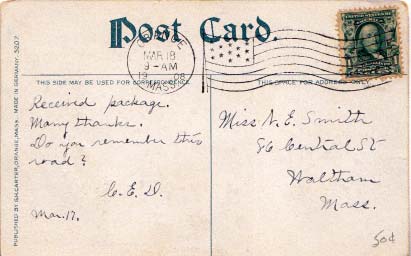 Post Card.
ORANGE
MAR 18
9-AM
MASS.
THIS SIDE MAY BE USED FOR CORRESPONDENCE
THIS SPACE FOR ADDRESS ONLY
Received package.
Many thanks.
Do you remember this
road?
C.E.D.
Mar. 17.
Miss N. E. Smith
86 Central St
Waltham
Mass.
50¢
PUBLISHED BY G.H. CARTER, ORANGE, MASS. MADE IN GERMANY. 5207